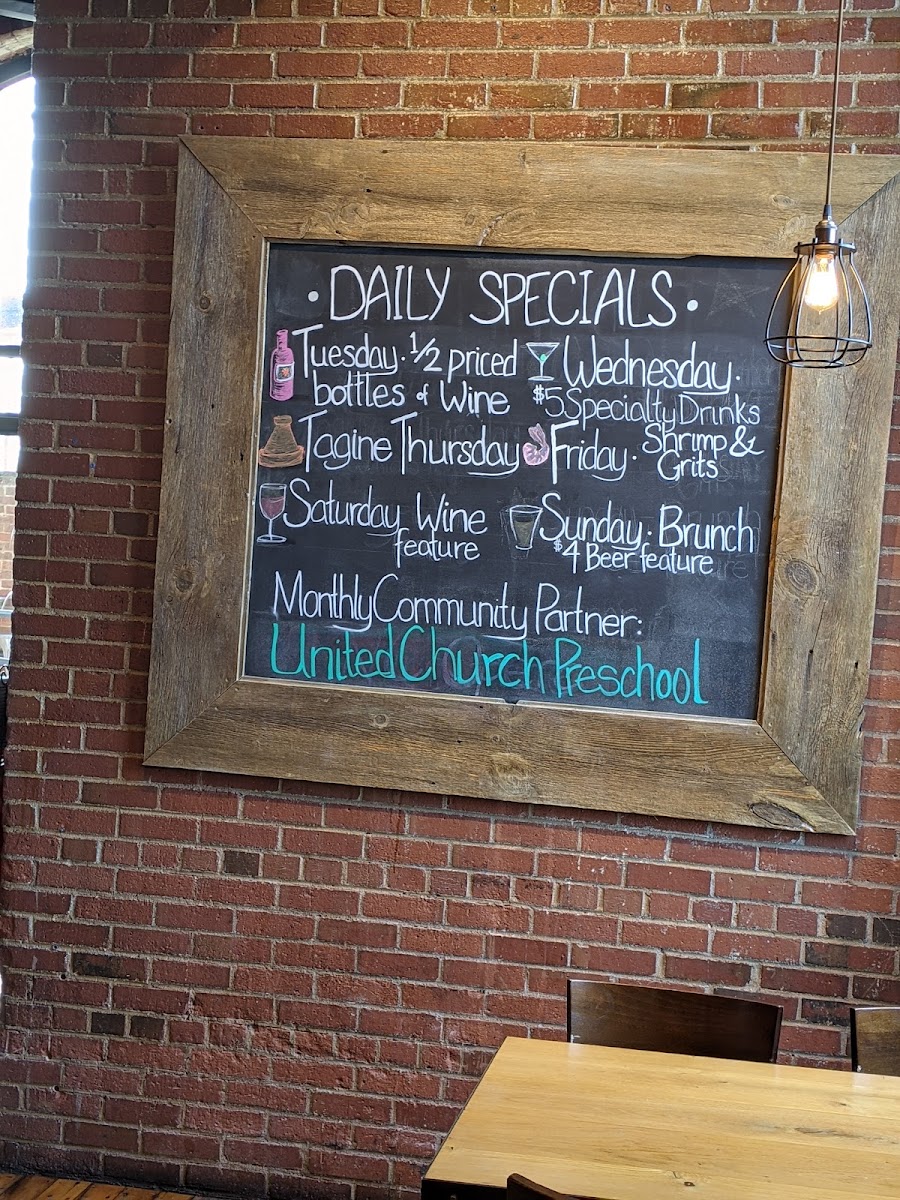 • DAILY SPECIALS •
Tuesday • 1/2 priced
bottles of Wine
Wednesday •
$5 Specialty Drinks
Tagine Thursday
Friday • Shrimp &
Grits
Saturday Wine
feature
Sunday • Brunch
$4 Beer feature
Monthly Community Partner:
United Church Preschool